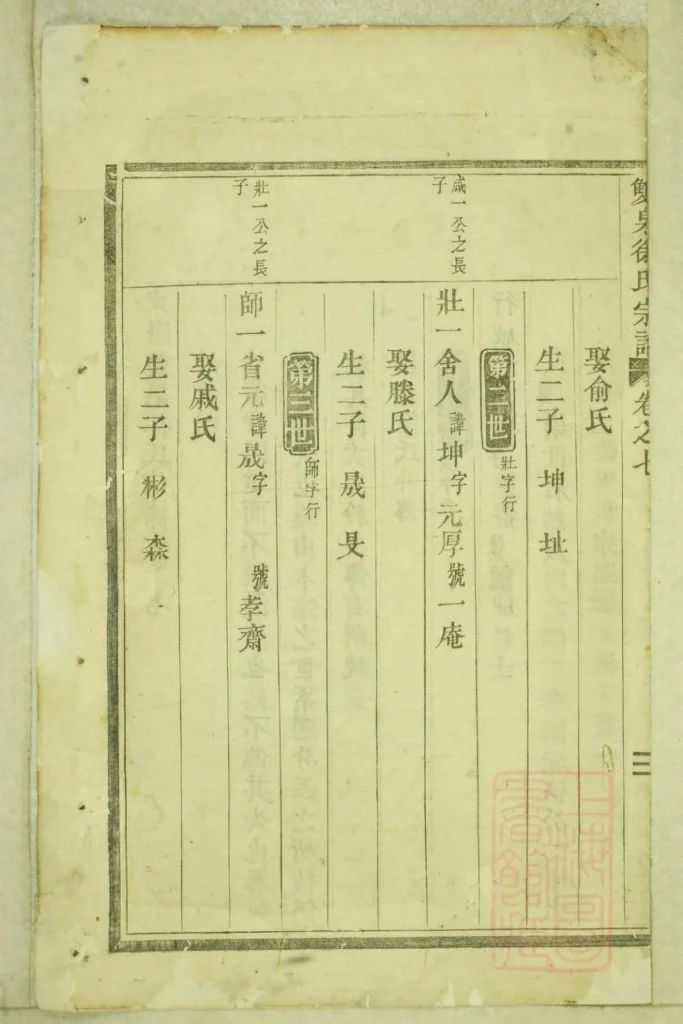 雙泉徐氏宗譜 卷之七
三
娶俞氏
生二子 坤 址
第二世 壯字行
咸一公之長子
壯一舍人 諱坤 字元厚 號一庵
娶滕氏
生二子 晟 旻
第三世 師字行
壯一公之長子
師一省元 諱晟 字 號孝齋
娶戚氏
生二子 彬 森